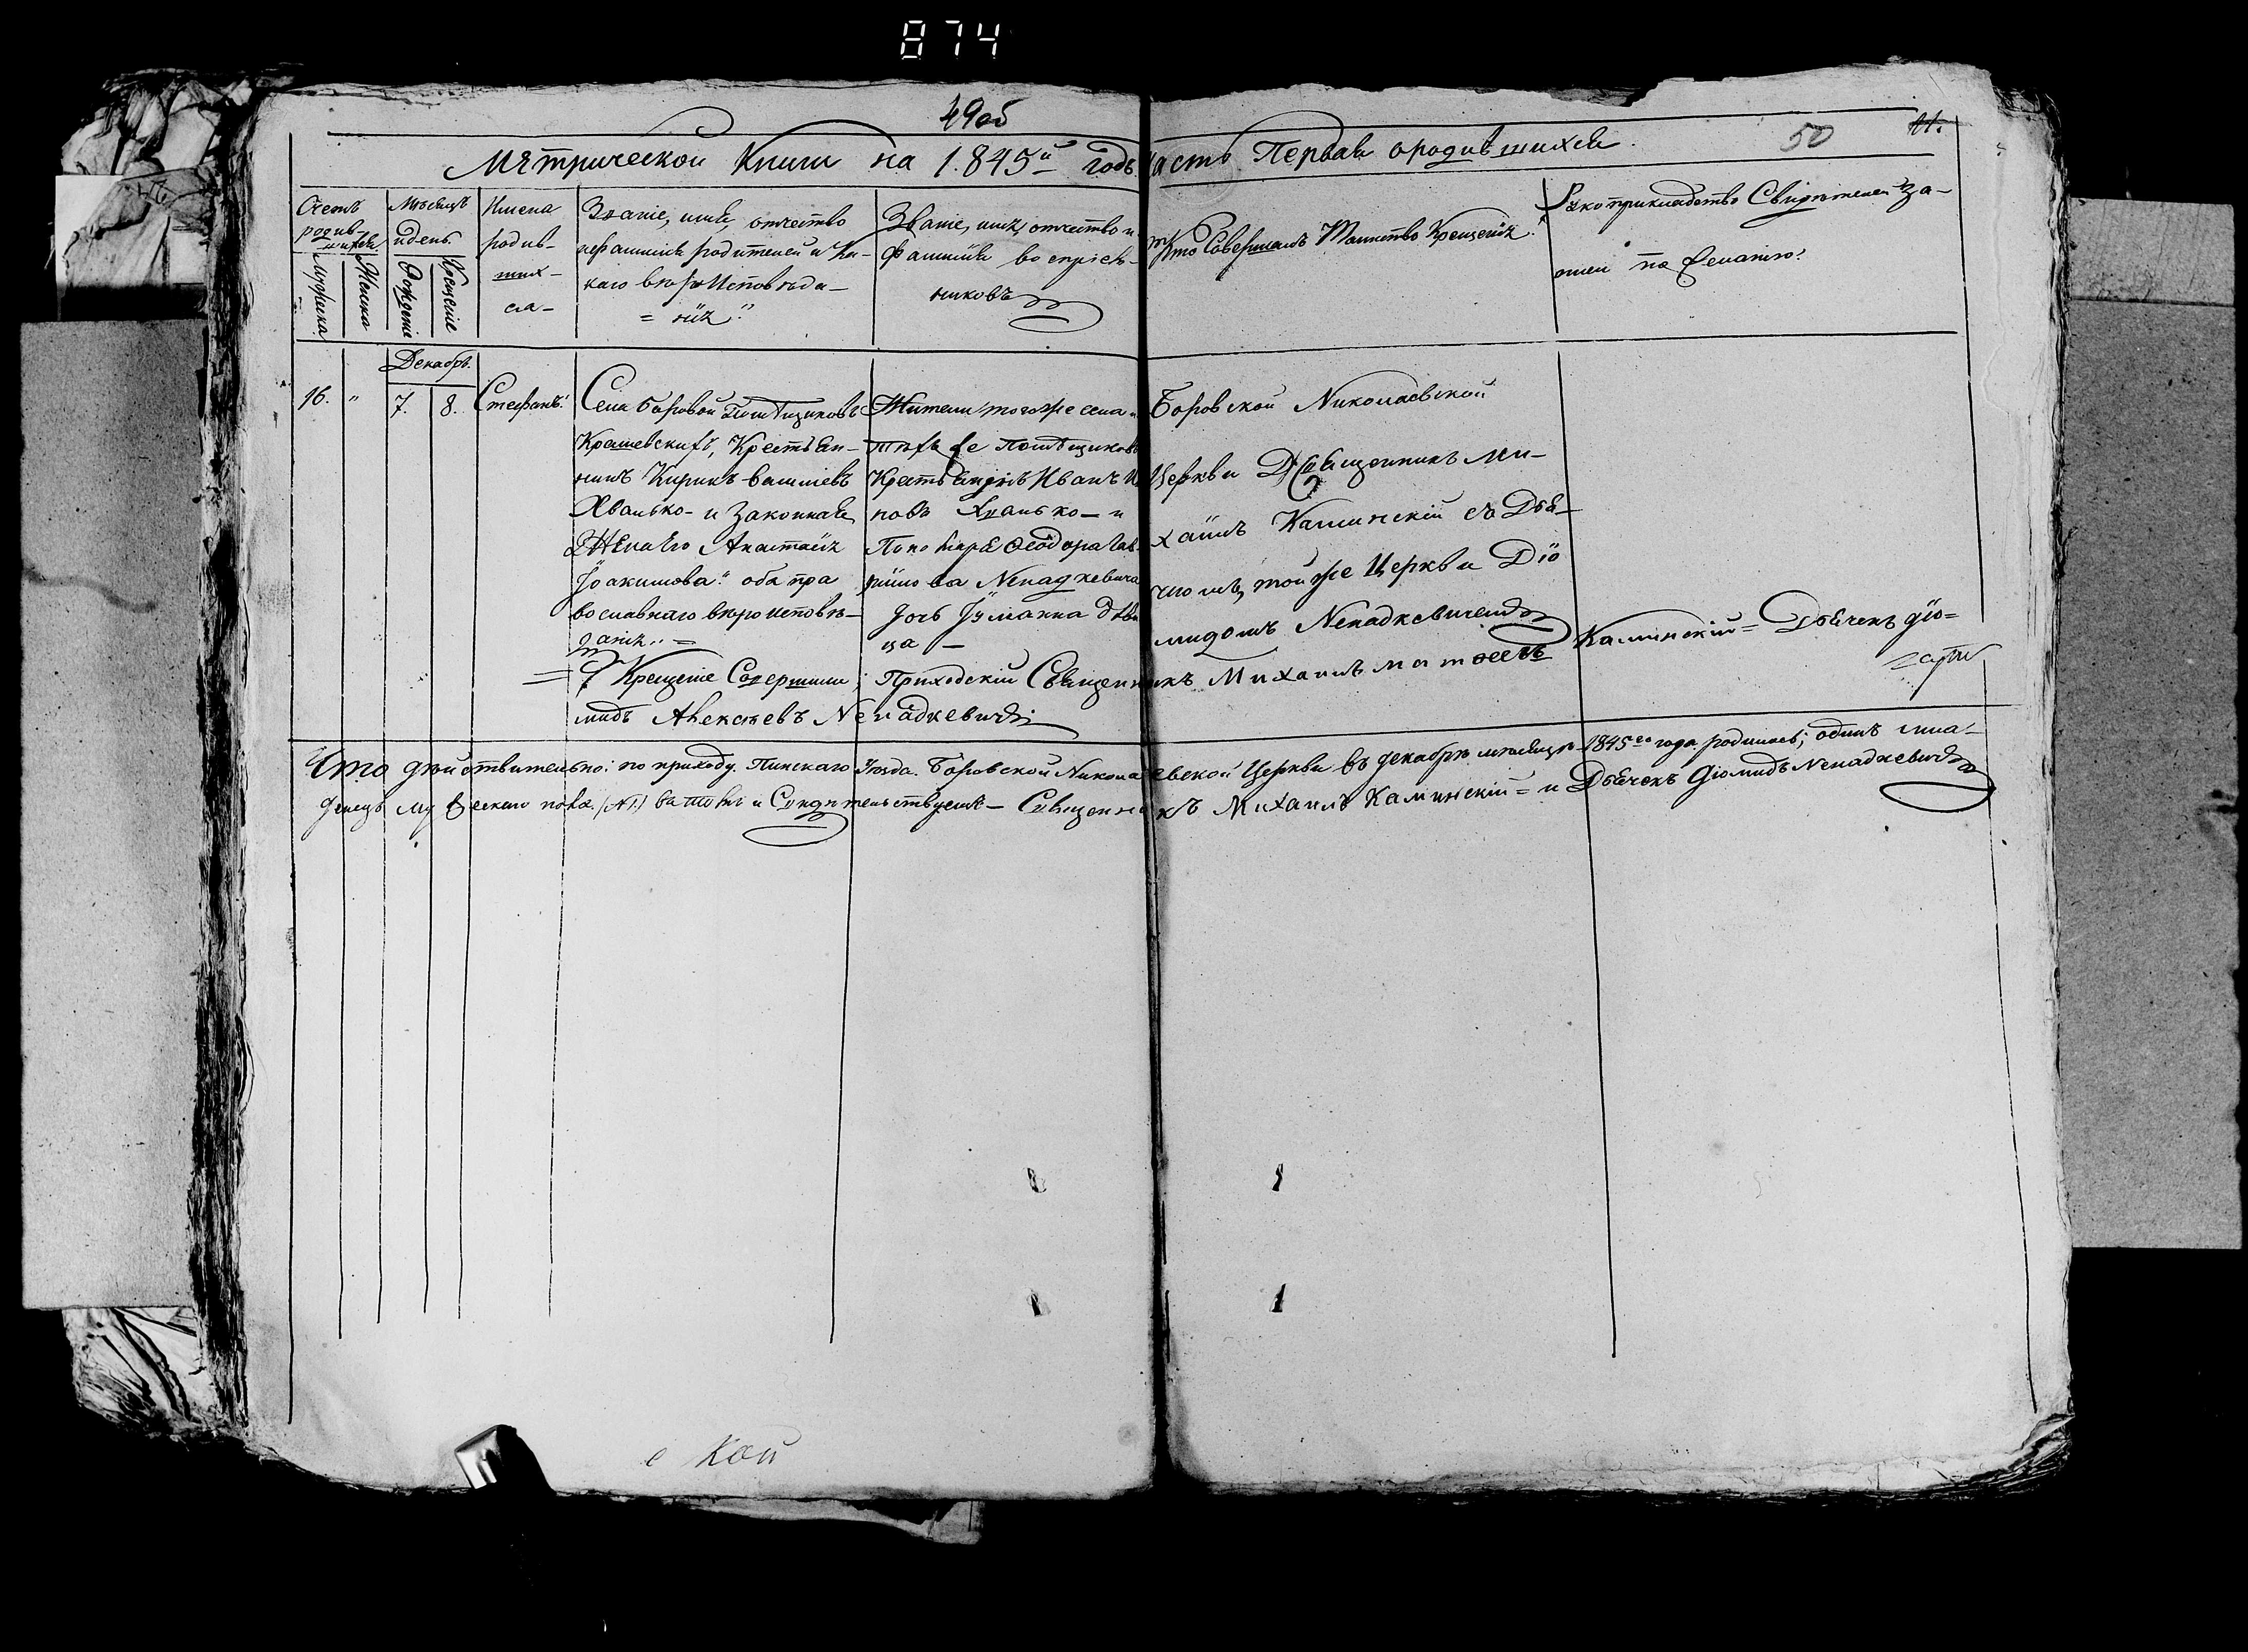 874
49об
50
11.
Мѣтрической Книги на 1.845й годъ Часть Первая о родившихся.
Счетъ родив-шихся
Мужеска
Женска
Мѣсяцъ и день.
Рожденіе
Крещеніе
Имена
родив-
ших-
ся-
Званіе, имя, отчество
и фамилія родителей и Ка-
каго вѣроИсповѣда-
= нія:
Званіе, имя, отчество и
Фамилія воспріем-
никовъ
Кто Совершалъ Таинство Крещенія.
Рукоприкладство Свидѣтелей за-
писи по желанію:
Декабрь.
16. " 7. 8. Стефанъ:
Села Боровой Помѣщиковъ
Крашевскихъ, Крестьян-
нинъ Кирикъ Василіевъ
Хванько- и Законная
Жена Его Анастасія
Іоакимова: оба пра
вославнаго вѣроисповѣ-
данія. =
Жители того же села
тѣхъ же помѣщиковъ
Крестьянинъ Иванъ
новъ Хванько- и
Пономаря Ѳеодора Гав-
риилова Ненадкевича
дочь Іулианна дѣви
ца -
Боровской Николаевской
Церкви Священникъ Ми-
хаилъ Каминскій съ Дья-
чкомъ, той же Церкви Діо
мидомъ Ненадкевичемъ
= Крещеніе Совершили; Приходскій Священникъ Михаилъ Каминскій = Дьячекъ Діо=
мидъ Алексѣевъ Ненадкевичъ
Что дѣйствительно: по приходу. Пинскаго Уѣзда. Боровской Николаевской Церкви въ декабрѣ мѣсяцѣ 1845го года родился; одинъ мла-
денецъ мужескаго пола (№1) въ томъ и Свидѣтельствуемъ - Священникъ Михаилъ Каминскій = и Дьячекъ Діомидъ Ненадкевичъ